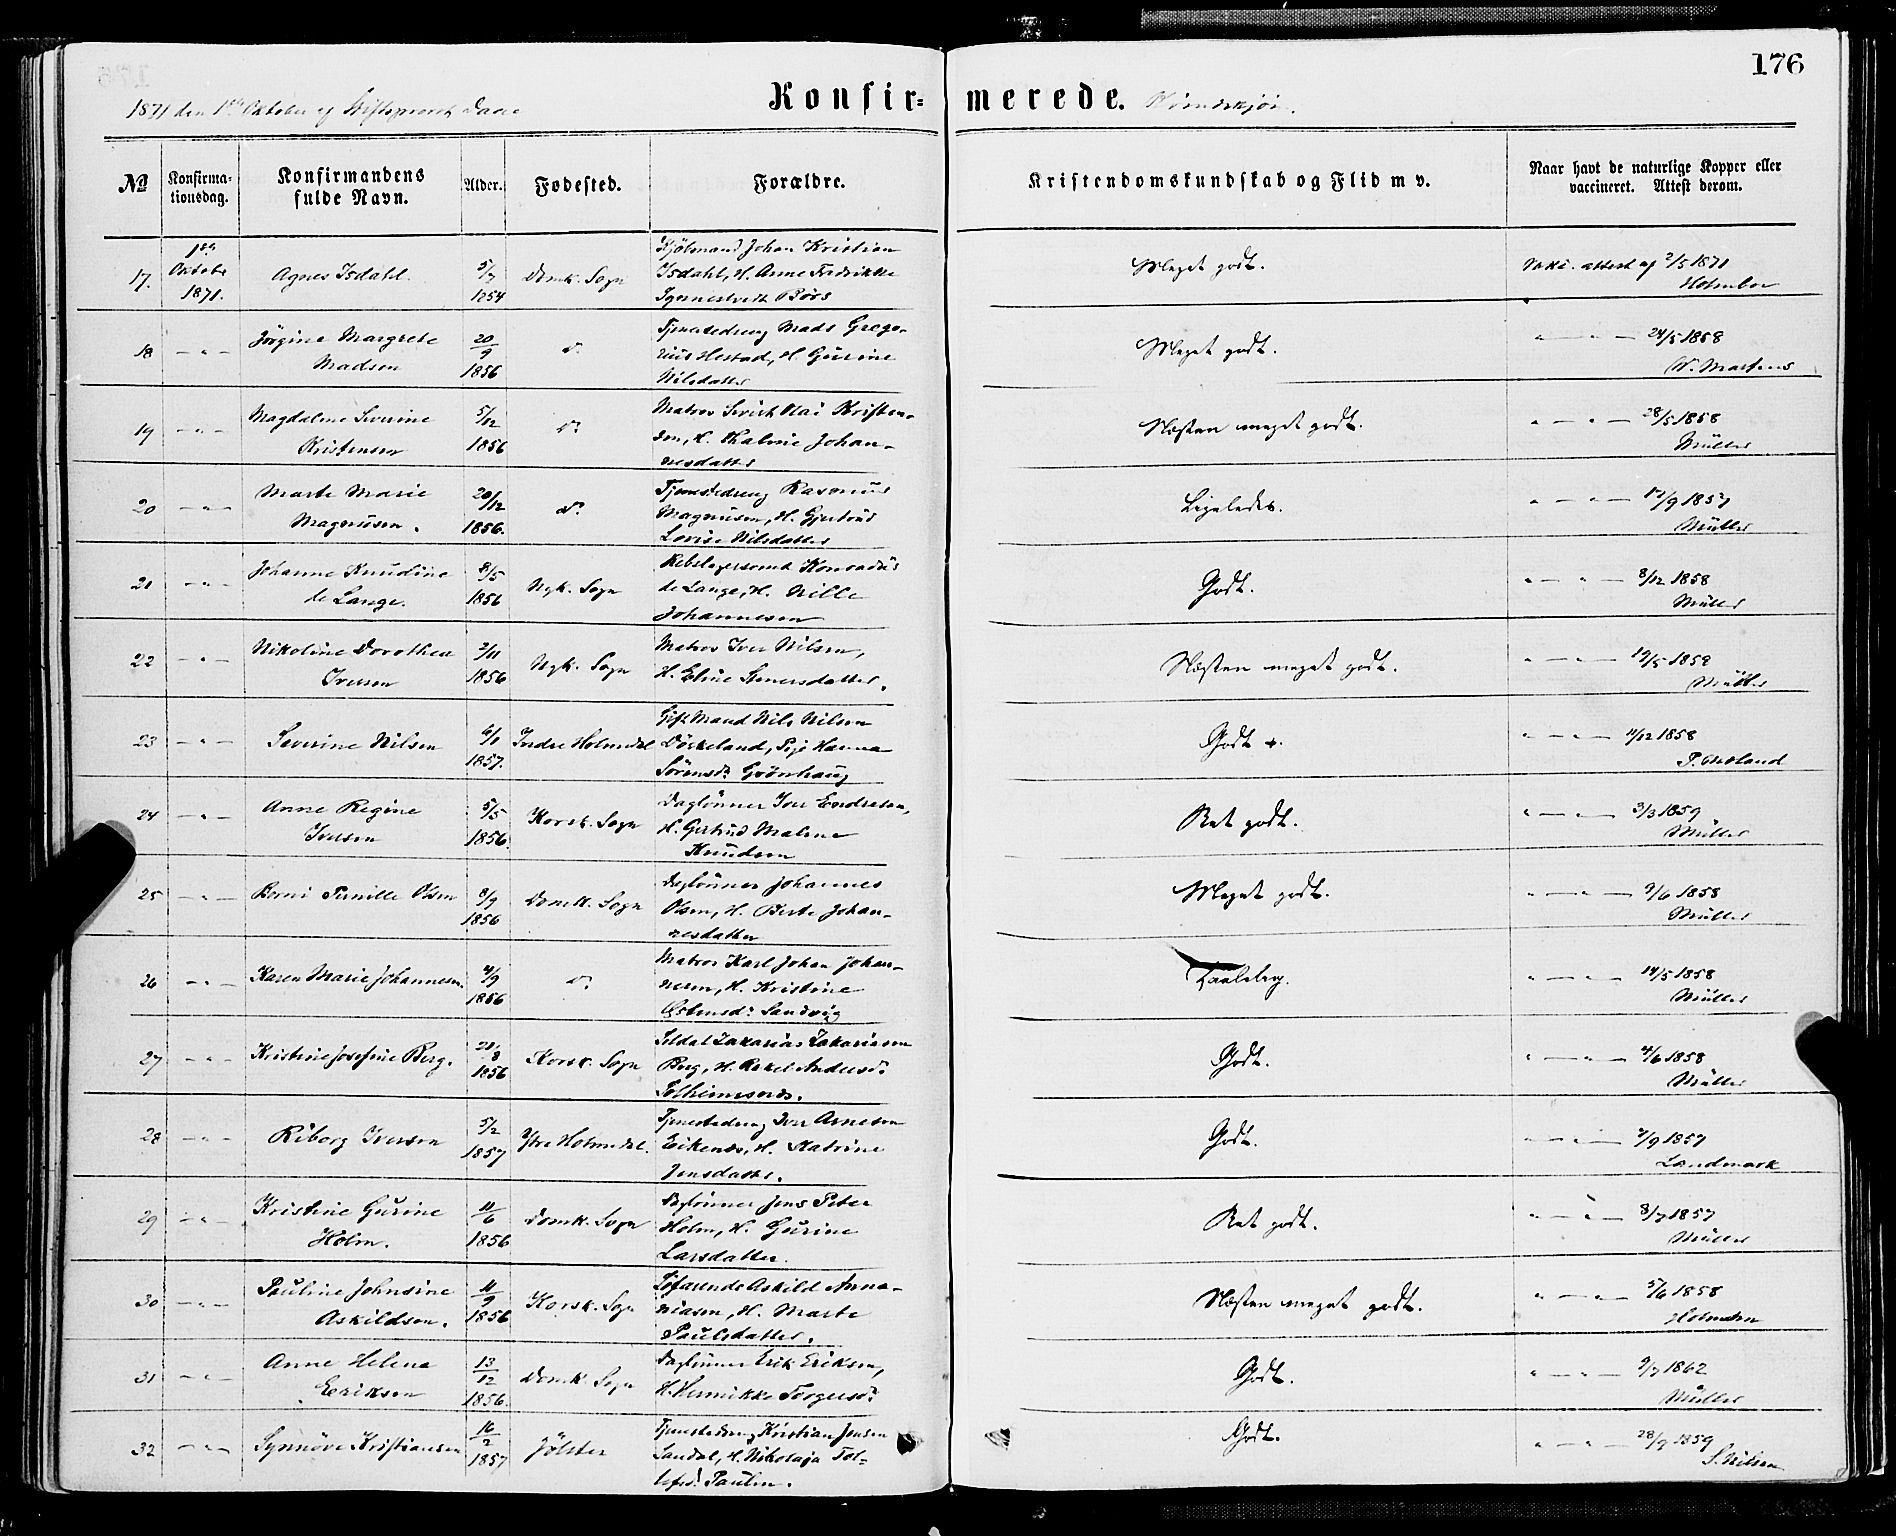 176
1871 den 1ste Oktober af Stiftsprovst Daae
Konfir= merede. Kvindekjön.
No
Konfirma-
tionsdag.
Konfirmandens
fulde Navn.
Alder.
Fødested.
Forældre.
Kristendomskundskab og Flid m v.
Naar havt de naturlige Kopper eller
vaccineret. Attest derom.
17. 1ste Oktober 1871. Agnes Isdahl. 5/7 1854 Domk. Sogn
Johan Kristian
Isdahl, H. Anne Fredrikke
Börs
Meget godt. attest af 2/5 1871
Holmboe
18 - " - Jörgine Margrete
Madsen 20/9 1856 do
Tjenestedreng Mads Grego-
rius Hestad, H. Gurine
Nilsdatter
Meget godt. " — " — 24/5 1858
W. Martens
19 - " - Magdalene Severine
Kristensen 5/12 1856 do
Matros Olai Kristen-
sen, H. Johan-
nesdatter
Næsten meget godt. " — " — 28/5 1858
Müller
20 - " - Marte Marie
Magnusen. 20/12 1856. do
Tjenestedreng Rasmus
Magnusen, H. Gjertrud
Lovise Nilsdatter
Ligeledes. " — " — /9 1857
Müller
21 - " - Johanne Knudine
de Lange. 8/5 1856 Nyk. Sogn
Rebslagersvend Konradus
de Lange, H. Nille
Johannesen
Godt. " — " — 8/12 1858
Müller
22 - " - Nikoline Dorothea
Iversen 3/11 1856 Nyk. Sogn
Matros Iver Nilsen,
H. Eline
Næsten meget godt. " — " — 19/5 1858
Müller
23 - " - Severine Nilsen 6/1 1857. Indre Holmedal
Gift Mand Nils Nilsen
Döskeland, Pige Hanna
Sörensdr Grönhaug
Godt +. " — " — 11/12 1858
P. Moland
24 - " - Anne Regine
Iversen 5/5 1856. Korsk. Sogn
Daglönner Iver Endresen,
H. Gertrud Malene
Knudsen
Ret godt. " — " — 3/3 1859
Müller
25 - " - Pernille Olsen 8/9 1856 Domk. Sogn
Daglönner Johannes
Olsen, H. Berte Johan-
nesdatter
Meget godt. " — " — 9/6 1858
Müller
26 - " - Karen Marie Johannesen. 4/9 1856 do
Matros Karl Johan Johan-
nesen, H. Kristine
Sandvig
Taalelig. " — " — 14/5 1858
Müller
27 - " - Kristine Josefine Berg. 21/8 1856 Korsk. Sogn
Soldat Zakarias Zakariasen
Berg, H. Rakel Andersdr
Solheimsvik.
Godt. " — " — 4/6 1858
Müller
28 - " - Riborg Iversen 5/2 1857 Ytre Holmedal.
Tjenestedreng Iver Arnesen
Eikenes, H. Katrine
Jensdatter.
Godt. " — " — 7/9 1857
Landmark
29 - " - Kristine Gurine
Holm. 11/6 1856 Domk. Sogn
Daglönner Jens Peter
Holm, H. Gurine
Larsdatter.
Ret godt. " — " — 8/7 1857
Müller
30 - " - Pauline Johnsine
Askildsen. 11/9 1856 Korsk. Sogn
Söfarende Askild Anna-
niasen, H. Marte
Paulsdatter.
Næsten meget godt. " — " — 5/6 1858
31 - " - Anne Helena
Eeriksen 13/12 1856. Domk. Sogn
Daglönner Erik Eriksen,
H. Hennikke Torgersdr
Godt. " — " — 9/7 1862
Müller
32 - " - Synnöve Kristiansen 16/2 1857 Jölster
Tjenestedreng Kristian Jensen
Sandal, H. Nikolaja Tol=
lefsdr Paulen.
Godt. " — " — 28/9 1859
S. Nilsen